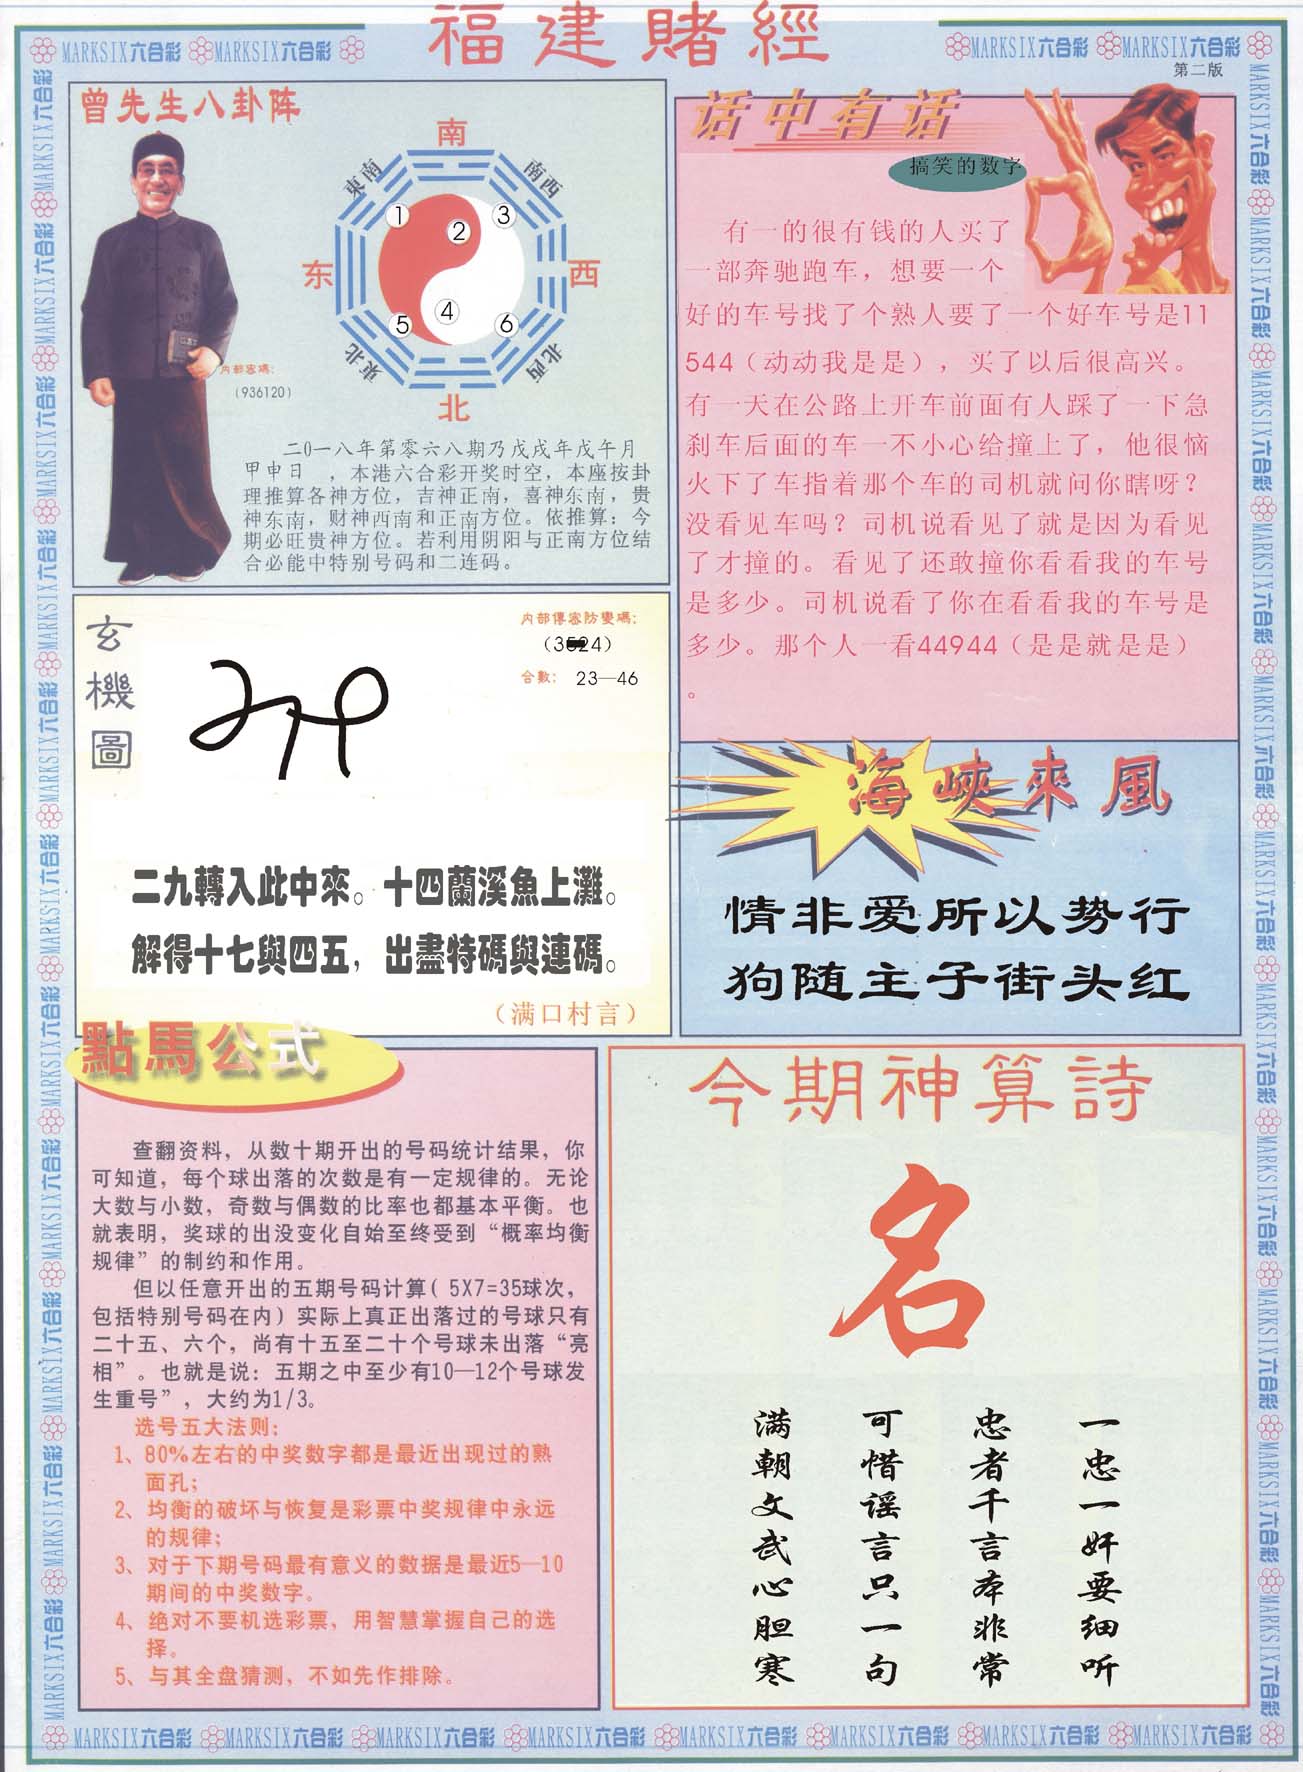 福建賭經
MARKSIX六合彩 MARKSIX六合彩
MARKSIX六合彩 MARKSIX六合彩
第二版
曾先生八卦阵
南
東南
南西
1
2
3
东
西
4
5
6
東北
北西
北
内部密碼:
(936120)
二0一八年第零六八期乃戊戌年戊午月
甲申日 ，本港六合彩开奖时空，本座按卦
理推算各神方位，吉神正南，喜神东南，贵
神东南，财神西南和正南方位。依推算：今
期必旺贵神方位。若利用阴阳与正南方位结
合必能中特别号码和二连码。
话中有话
搞笑的数字
有一的很有钱的人买了
一部奔驰跑车，想要一个
好的车号找了个熟人要了一个好车号是11
544（动动我是是），买了以后很高兴。
有一天在公路上开车前面有人踩了一下急
刹车后面的车一不小心给撞上了，他很恼
火下了车指着那个车的司机就问你瞎呀？
没看见车吗？司机说看见了就是因为看见
了才撞的。看见了还敢撞你看看我的车号
是多少。司机说看了你在看看我的车号是
多少。那个人一看44944（是是就是是）
。
玄機圖
内部傳密防變碼:
合數: 23—46
二九轉入此中來。十四蘭溪魚上灘。
解得十七與四五，出盡特碼與連碼。
（满口村言）
海峽來風
情非爱所以势行
狗随主子街头红
點馬公式
查翻资料，从数十期开出的号码统计结果，你
可知道，每个球出落的次数是有一定规律的。无论
大数与小数，奇数与偶数的比率也都基本平衡。也
就表明，奖球的出没变化自始至终受到“概率均衡
规律”的制约和作用。
但以任意开出的五期号码计算( 5X7=35球次，
包括特别号码在内）实际上真正出落过的号球只有
二十五、六个，尚有十五至二十个号球未出落“亮
相”。也就是说：五期之中至少有10—12个号球发
生重号”，大约为1/3。
选号五大法则：
1、80%左右的中奖数字都是最近出现过的熟
面孔；
2、均衡的破坏与恢复是彩票中奖规律中永远
的规律；
3、对于下期号码最有意义的数据是最近5—10
期间的中奖数字。
4、绝对不要机选彩票，用智慧掌握自己的选
择。
5、与其全盘猜测，不如先作排除。
今期神算詩
名
一忠一奸要细听
忠者千言本非常
可惜谣言只一句
满朝文武心胆寒
MARKSIX六合彩 MARKSIX六合彩 MARKSIX六合彩 MARKSIX六合彩 MARKSIX六合彩 MARKSIX六合彩 MARKSIX六合彩 MARKSIX六合彩